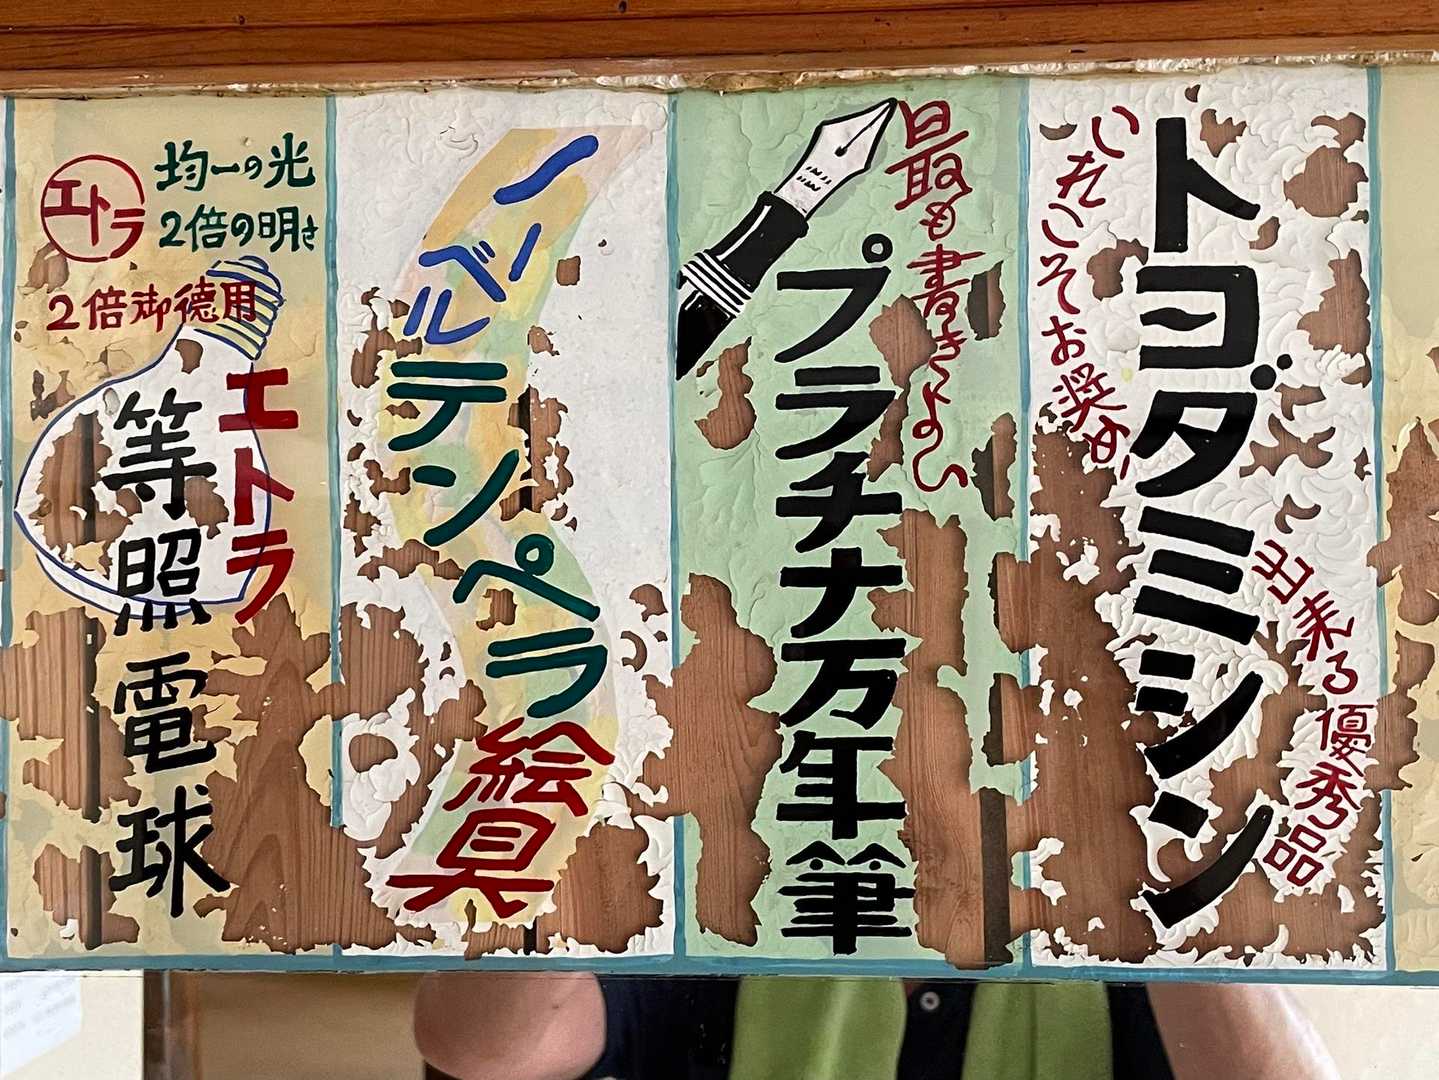 トヨダミシン
これこそお奨め
ヨ来る優秀品
最も書きよい
プラチナ万年筆
ノーベル
テンペラ
絵具
エトラ
均一の光
2倍の明さ
2倍御徳用
エトラ
等照電球